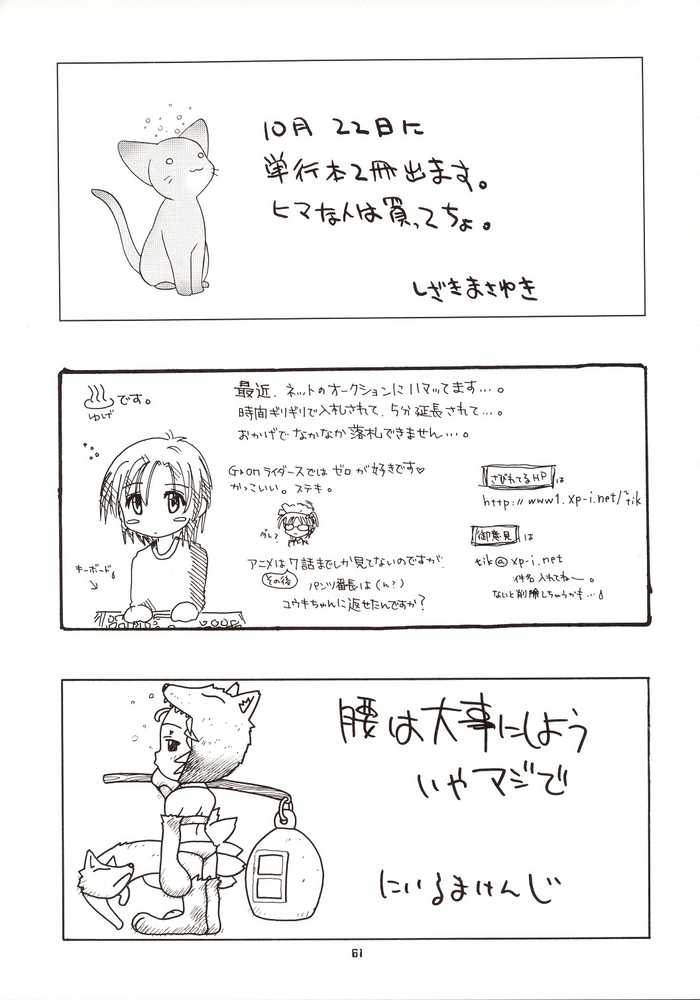 10月 22日に
単行本2冊出ます。
ヒマな人は買ってちょ。
しざきまさゆき
♨です。
ゆげ
最近、ネットのオークションにハマッてます…。
時間ギリギリで入札されて、5分延長されて…。
おかげでなかなか落札できません…。
G-onライダースではゼロが好きです♡
かっこいい。ステキ。
ダレ?
キーボード
アニメは7話までしか見てないのですが、
その後 パンツ番長は(ん?)
ユウキちゃんに返せたんですか?
さびれてるHP は
http://www1.xp-i.net/~tik
御意見 は
tik@xp-i.net
件名入れてねー。
ないと削除しちゃうかも…
腰は大事にしよう
いやマジで
にいるまけんじ
61